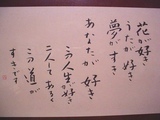 花が好き
うたが好き
夢がすき
あなたが好き
この人生が好き
二人してあるく
この道が
すきです